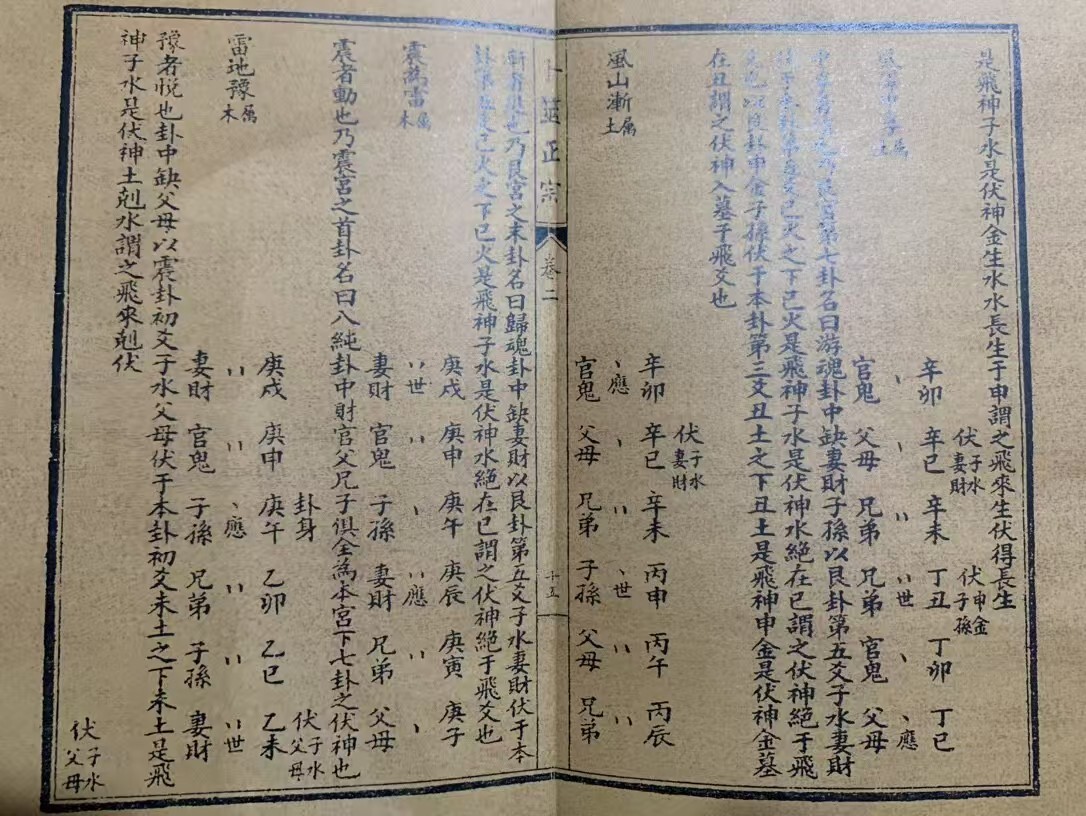 是飛神子水是伏神金生水水長生于申謂之飛來生伏得長生
風澤中孚屬土
伏子水妻財 伏申金子孫
辛卯 辛巳 辛未 丁丑 丁卯 丁巳
、 、 〃 〃世 、 、應
官鬼 父母 兄弟 兄弟 官鬼 父母
中孚者信也乃艮宮第七卦名曰游魂卦中缺妻財子孫以艮卦第五爻子水妻財
伏于本卦第五爻巳火之下巳火是飛神子水是伏神水絕在巳謂之伏神絕于飛
爻也以艮卦申金子孫伏于本卦第三爻丑土之下丑土是飛神申金是伏神金墓
在丑謂之伏神入墓于飛爻也
風山漸屬土
伏子水妻財
辛卯 辛巳 辛未 丙申 丙午 丙辰
、應 、 〃 、世 〃 〃
官鬼 父母 兄弟 子孫 父母 兄弟
卜筮正宗 卷二 十五
漸者進也乃艮宮之末卦名曰歸魂卦中缺妻財以艮卦第五爻子水妻財伏于本
卦第五爻巳火之下巳火是飛神子水是伏神水絕在巳謂之伏神絕于飛爻也
震為雷屬木
庚戌 庚申 庚午 庚辰 庚寅 庚子
〃世 〃 、 〃應 〃 、
妻財 官鬼 子孫 妻財 兄弟 父母
震者動也乃震宮之首卦名曰八純卦中財官父兄子俱全為本宮下七卦之伏神也
雷地豫屬木
卦身 伏子水父母
庚戌 庚申 庚午 乙卯 乙巳 乙未
〃 〃 、應 〃 〃 〃世
妻財 官鬼 子孫 兄弟 子孫 妻財
豫者悅也卦中缺父母以震卦初爻子水父母伏于本卦初爻未土之下未土是飛
神子水是伏神土剋水謂之飛來剋伏
伏子水父母